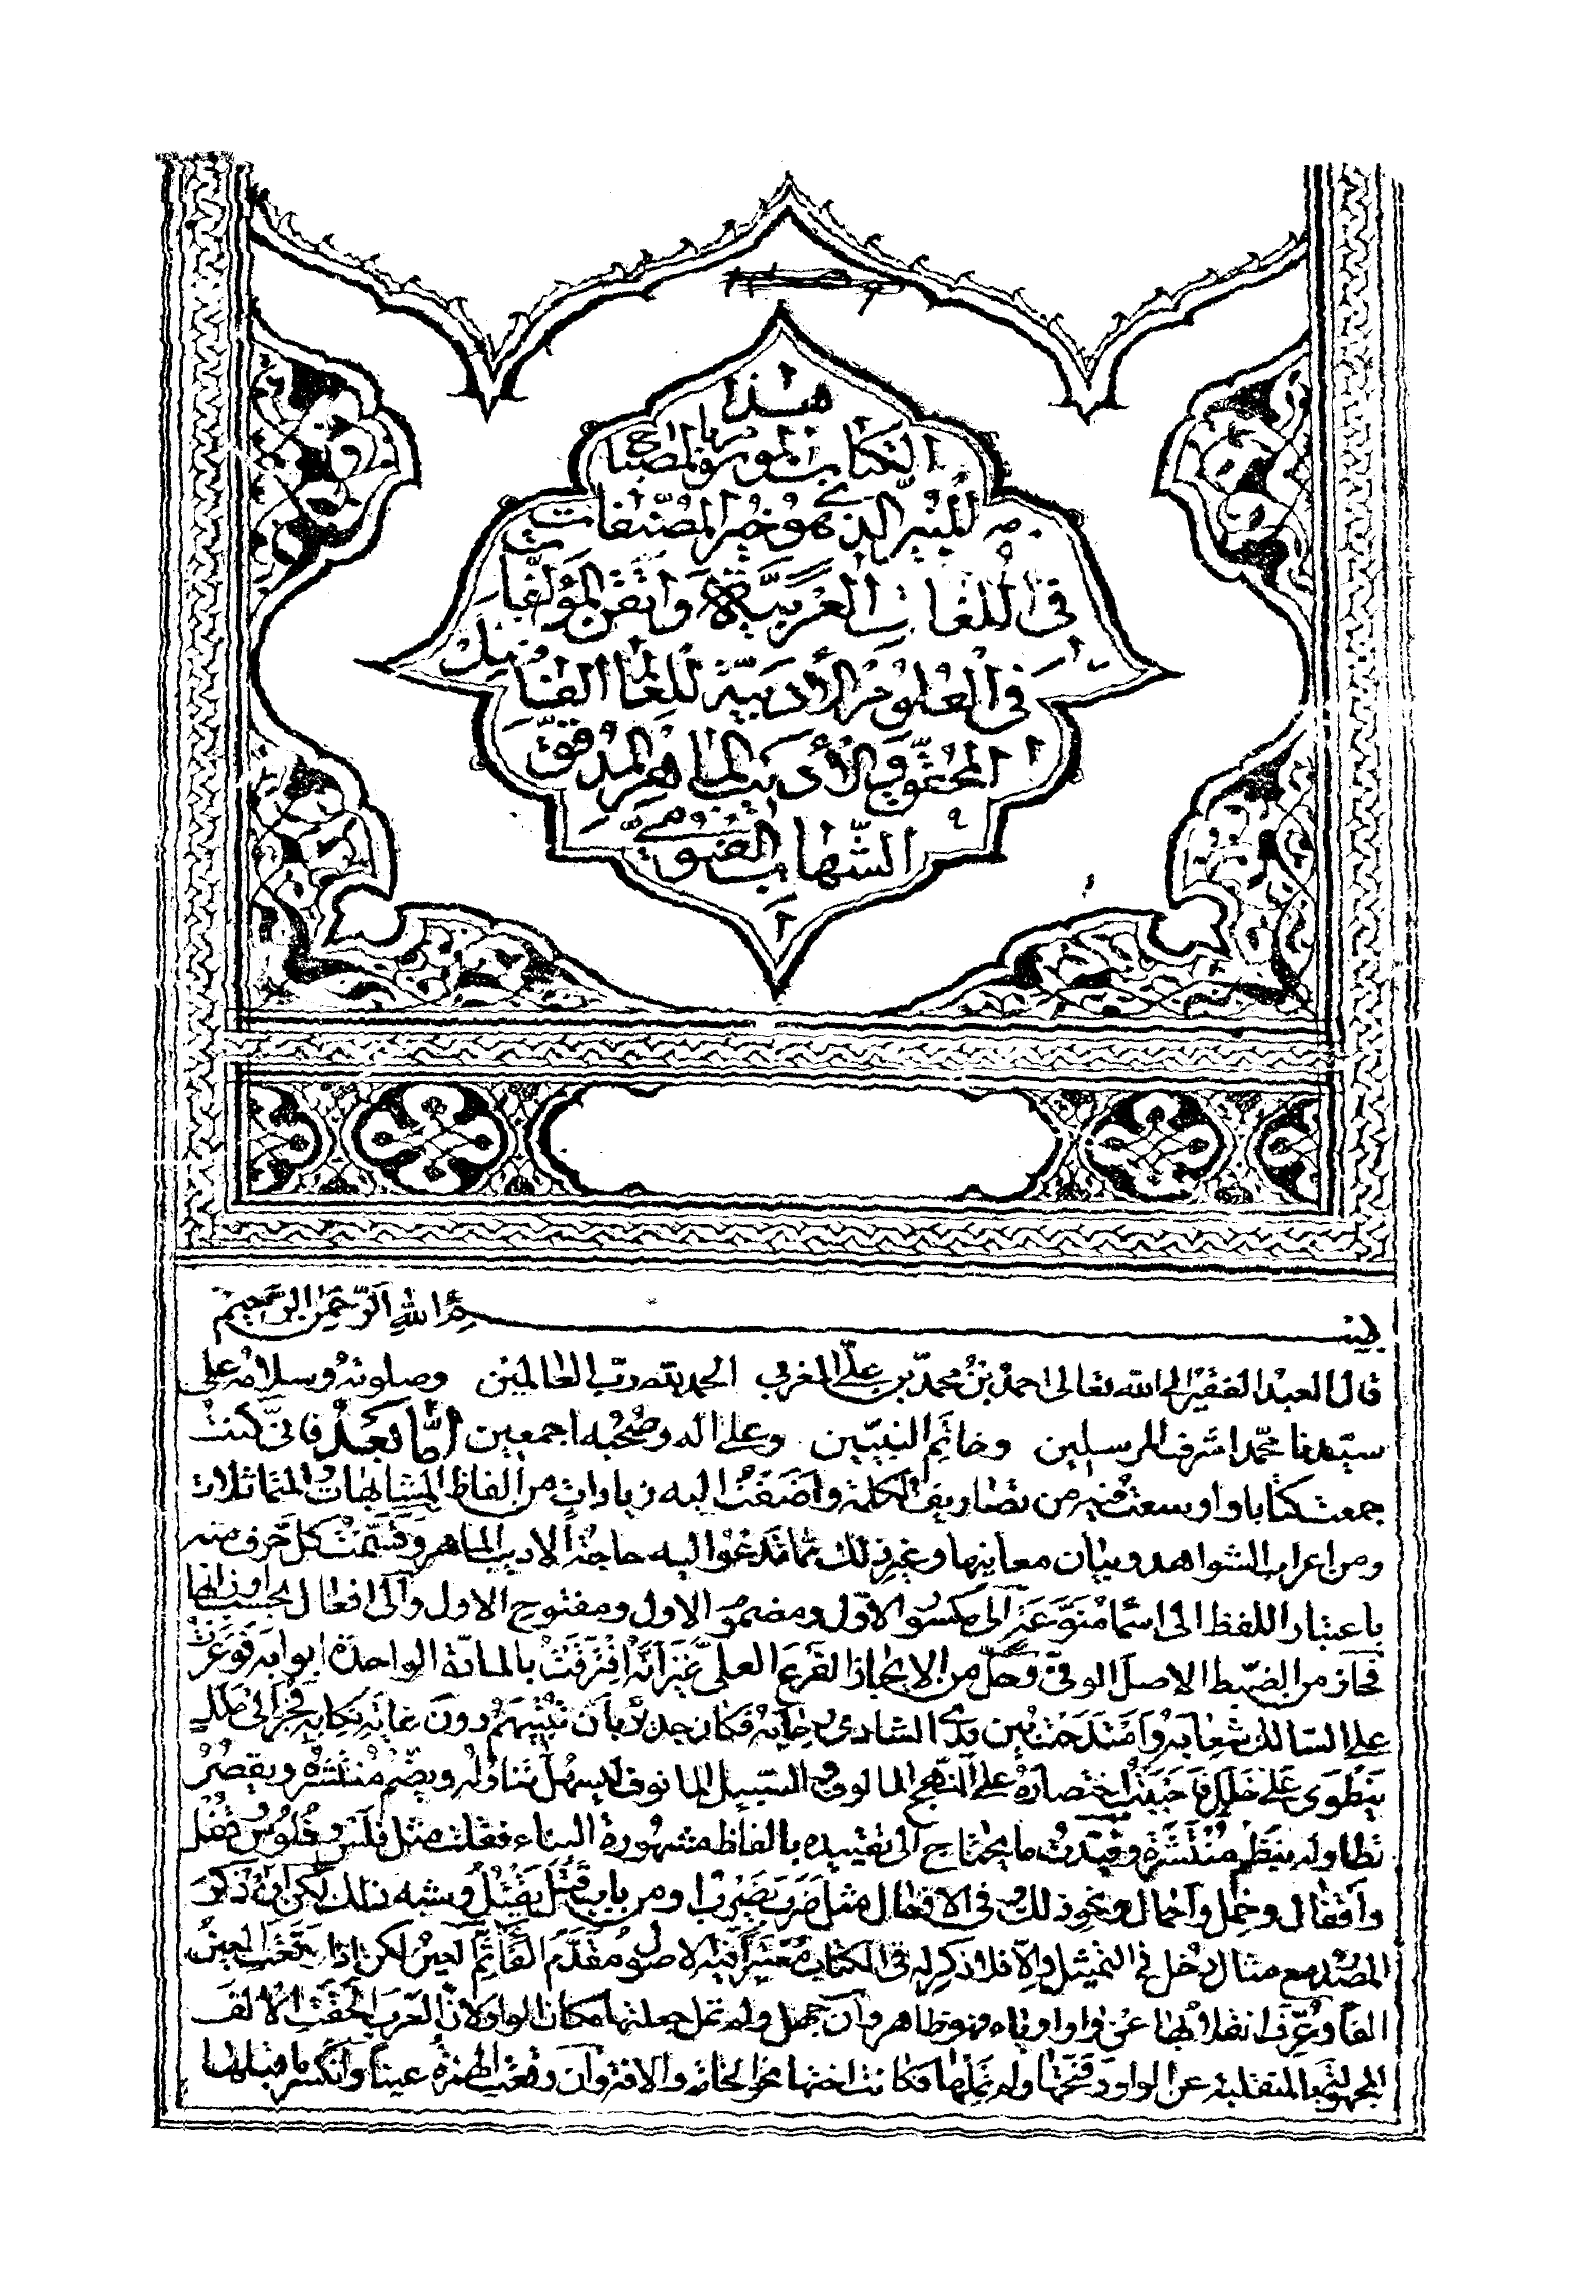 هذا
الكتاب الموسوم بالمصباح
المنير الذي هو خير المصنفات
في اللغات العربية واتقن المؤلفات
في العلوم الأدبية للغا الفنا
المحقق الأديب الماهر المدقق
الشهاب الفيومي
بسم الله الرحمن الرحيم
قال العبد الفقير الى الله تعالى احمد بن محمد بن علي المغربي الحمد لله رب العالمين وصلوته وسلامه على
سيدنا محمد اشرف المرسلين وخاتم النبيين وعلى اله وصحبه اجمعين أما بعد فاني كنت
جمعت كتابا واوسعت فيه من تصاريف الكلمة واضفت اليه زيادات من الفاظ المشابهات المتماثلات
ومن اعراب الشواهد وبيان معانيها وغير ذلك مما تدعوا اليه حاجة الاديب الماهر وقسمت كل حرف منه
باعتبار اللفظ الى اسما منوعة الى مكسور الاول ومضموم الاول ومفتوح الاول والى افعال بحسب اوزانها
فحاز من الضبط الاصل الوفي وحل من الايجاز الفرع العلي غير انه افترقت بالمادة الواحدة ابوابه فوعرت
على السالك شعابه وامتدحت بين يدي الشادي رحابه فكان جديرا بان تنبتهم دون غايته ركابه فجر الى ملل
ينطوي على خلل فاحببت اختصاره على النهج المالوف والسبيل المانوف ليسهل تناوله ويضم منتشره ويقصر
تطاوله بنظم منتشره وقيدت ما يحتاج الى تقييده بالفاظ مشهورة البناء فقلت مثل فلس وفلوس وقفل
واقفال وحمل واحمال ونحو ذلك وفي الافعال مثل ضرب يضرب او من باب قتل يقتل وشبه ذلك لكن ان ذكر
المصدر مع مثال دخل في التمثيل والا فلا ذكر له في الكتاب معتبرا فيه الاصول مقدم الفا ثم العين لكن اذا وقعت العين
الفا وعرف انقلابها عن واو او ياء فهو ظاهر وان جهل ولم تمل جعلتها مكان الواو لان العرب الحقت الالف
المجهولة بالمنقلبة عن الواو ففتحتها ولم تملها فكانت اختها نحو الخامة والافة وان وقعت الهمزة عينا وانكسر ما قبلها